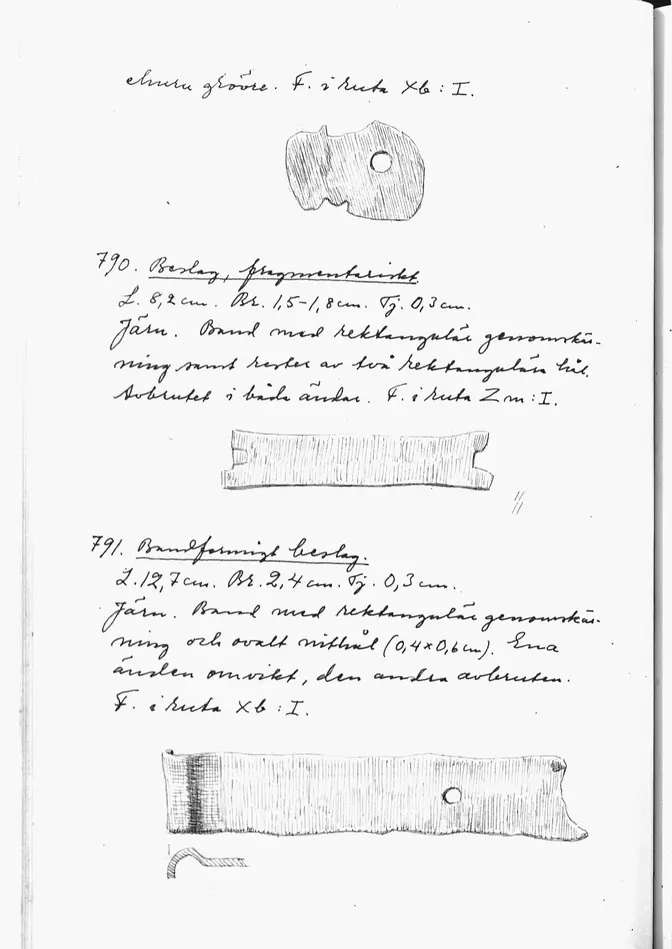 ehuru grövre. F. i ruta Xb : I.
790. Beslag, fragmentariskt.
L. 8,2 cm. Br. 1,5-1,8 cm. Tj. 0,3 cm.
Järn. Band med rektangulär genomskä-
ning samt rester av två rektangulära hål.
Avbrutet i båda ändar. F. i ruta Z m : I.
791. Bandformigt beslag.
L. 12,7 cm. Br. 2,4 cm. Tj. 0,3 cm.
Järn. Band med rektangulär genomskär-
ning och ovalt nithål (0,4 x 0,6 cm). Ena
änden omvikt, den andra avbruten.
F. i ruta Xb : I.